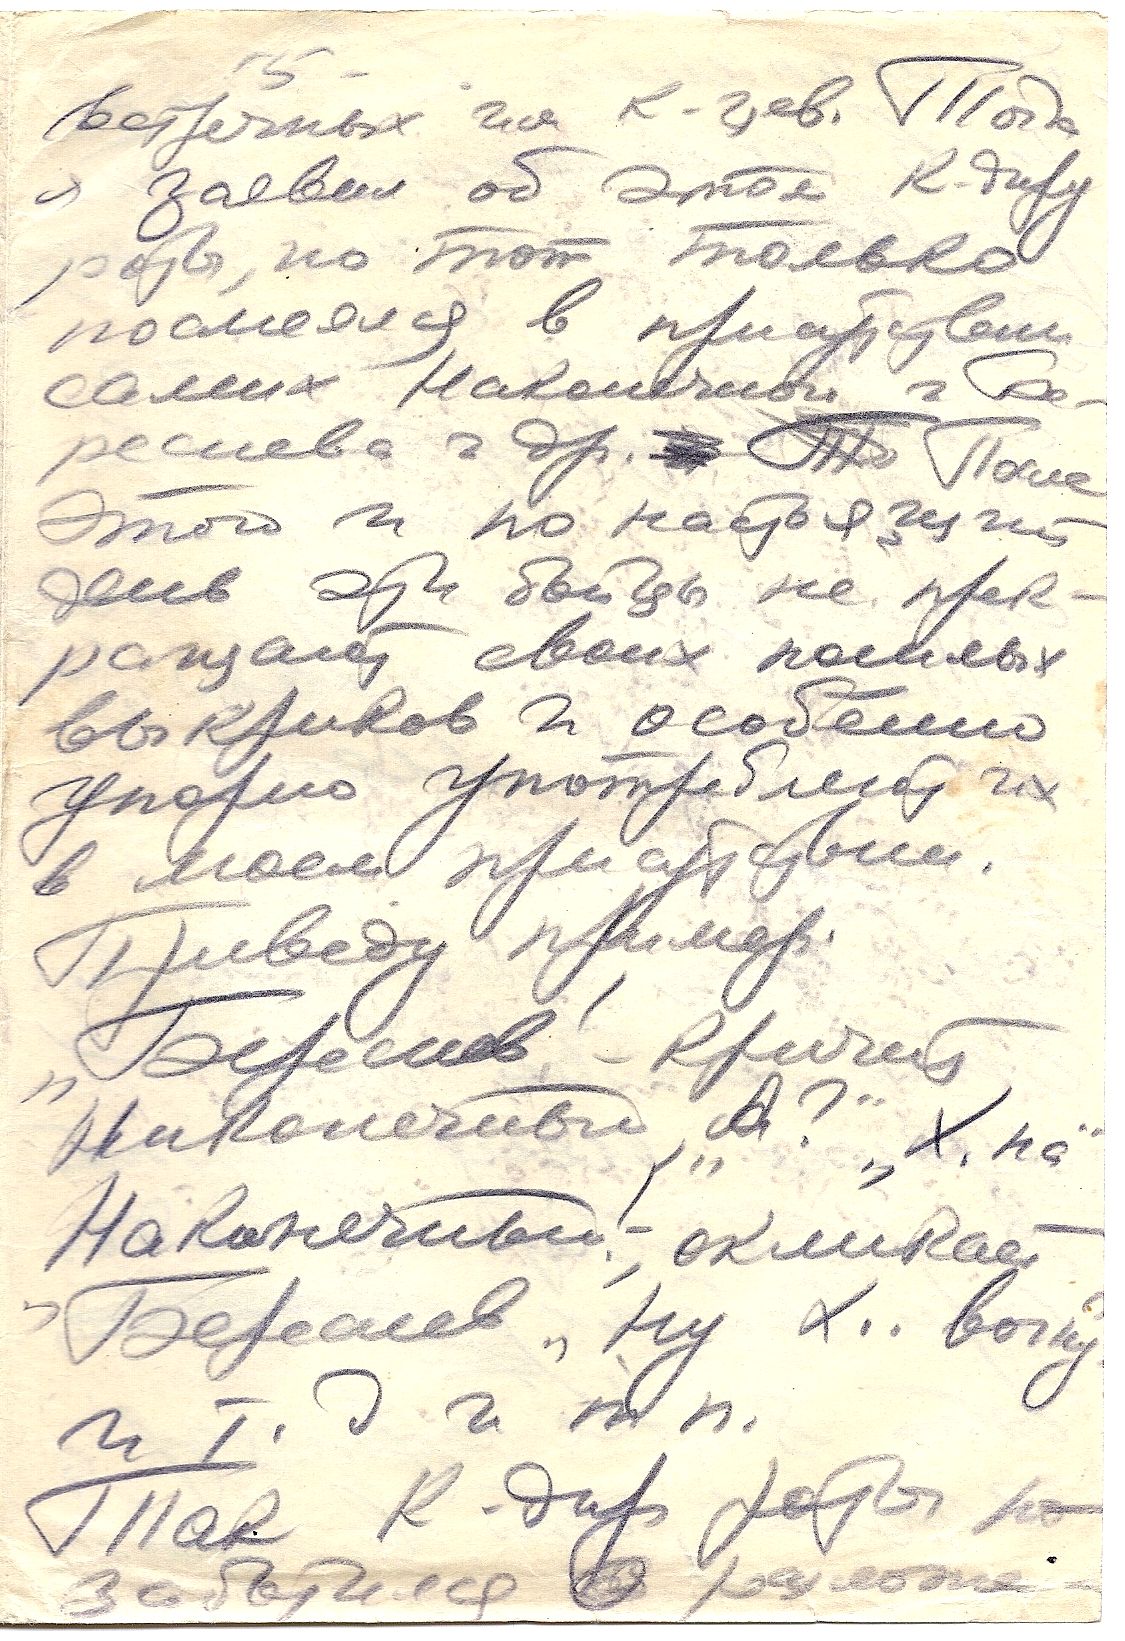 - 5 -
встречных ими к-цев. Тогда
я заявил об этом К-диру
роты, но тот только
посмеялся в присутствии
самих Наконечной и Бе-
реснева и др. После
этого и по настоящий
день эти бойцы не прек-
ращают своих пошлых
выкриков и особенно
упорно употребляют их
в моем присутствии.
Приведу пример.
„Береснев! - кричит
Наконечный, „А?" „Х. на"
Наконечный! - окликает
Береснев „Ну х.. вочку
и т. д и т п.
Так К-дир роты по-
заботился о разложе-